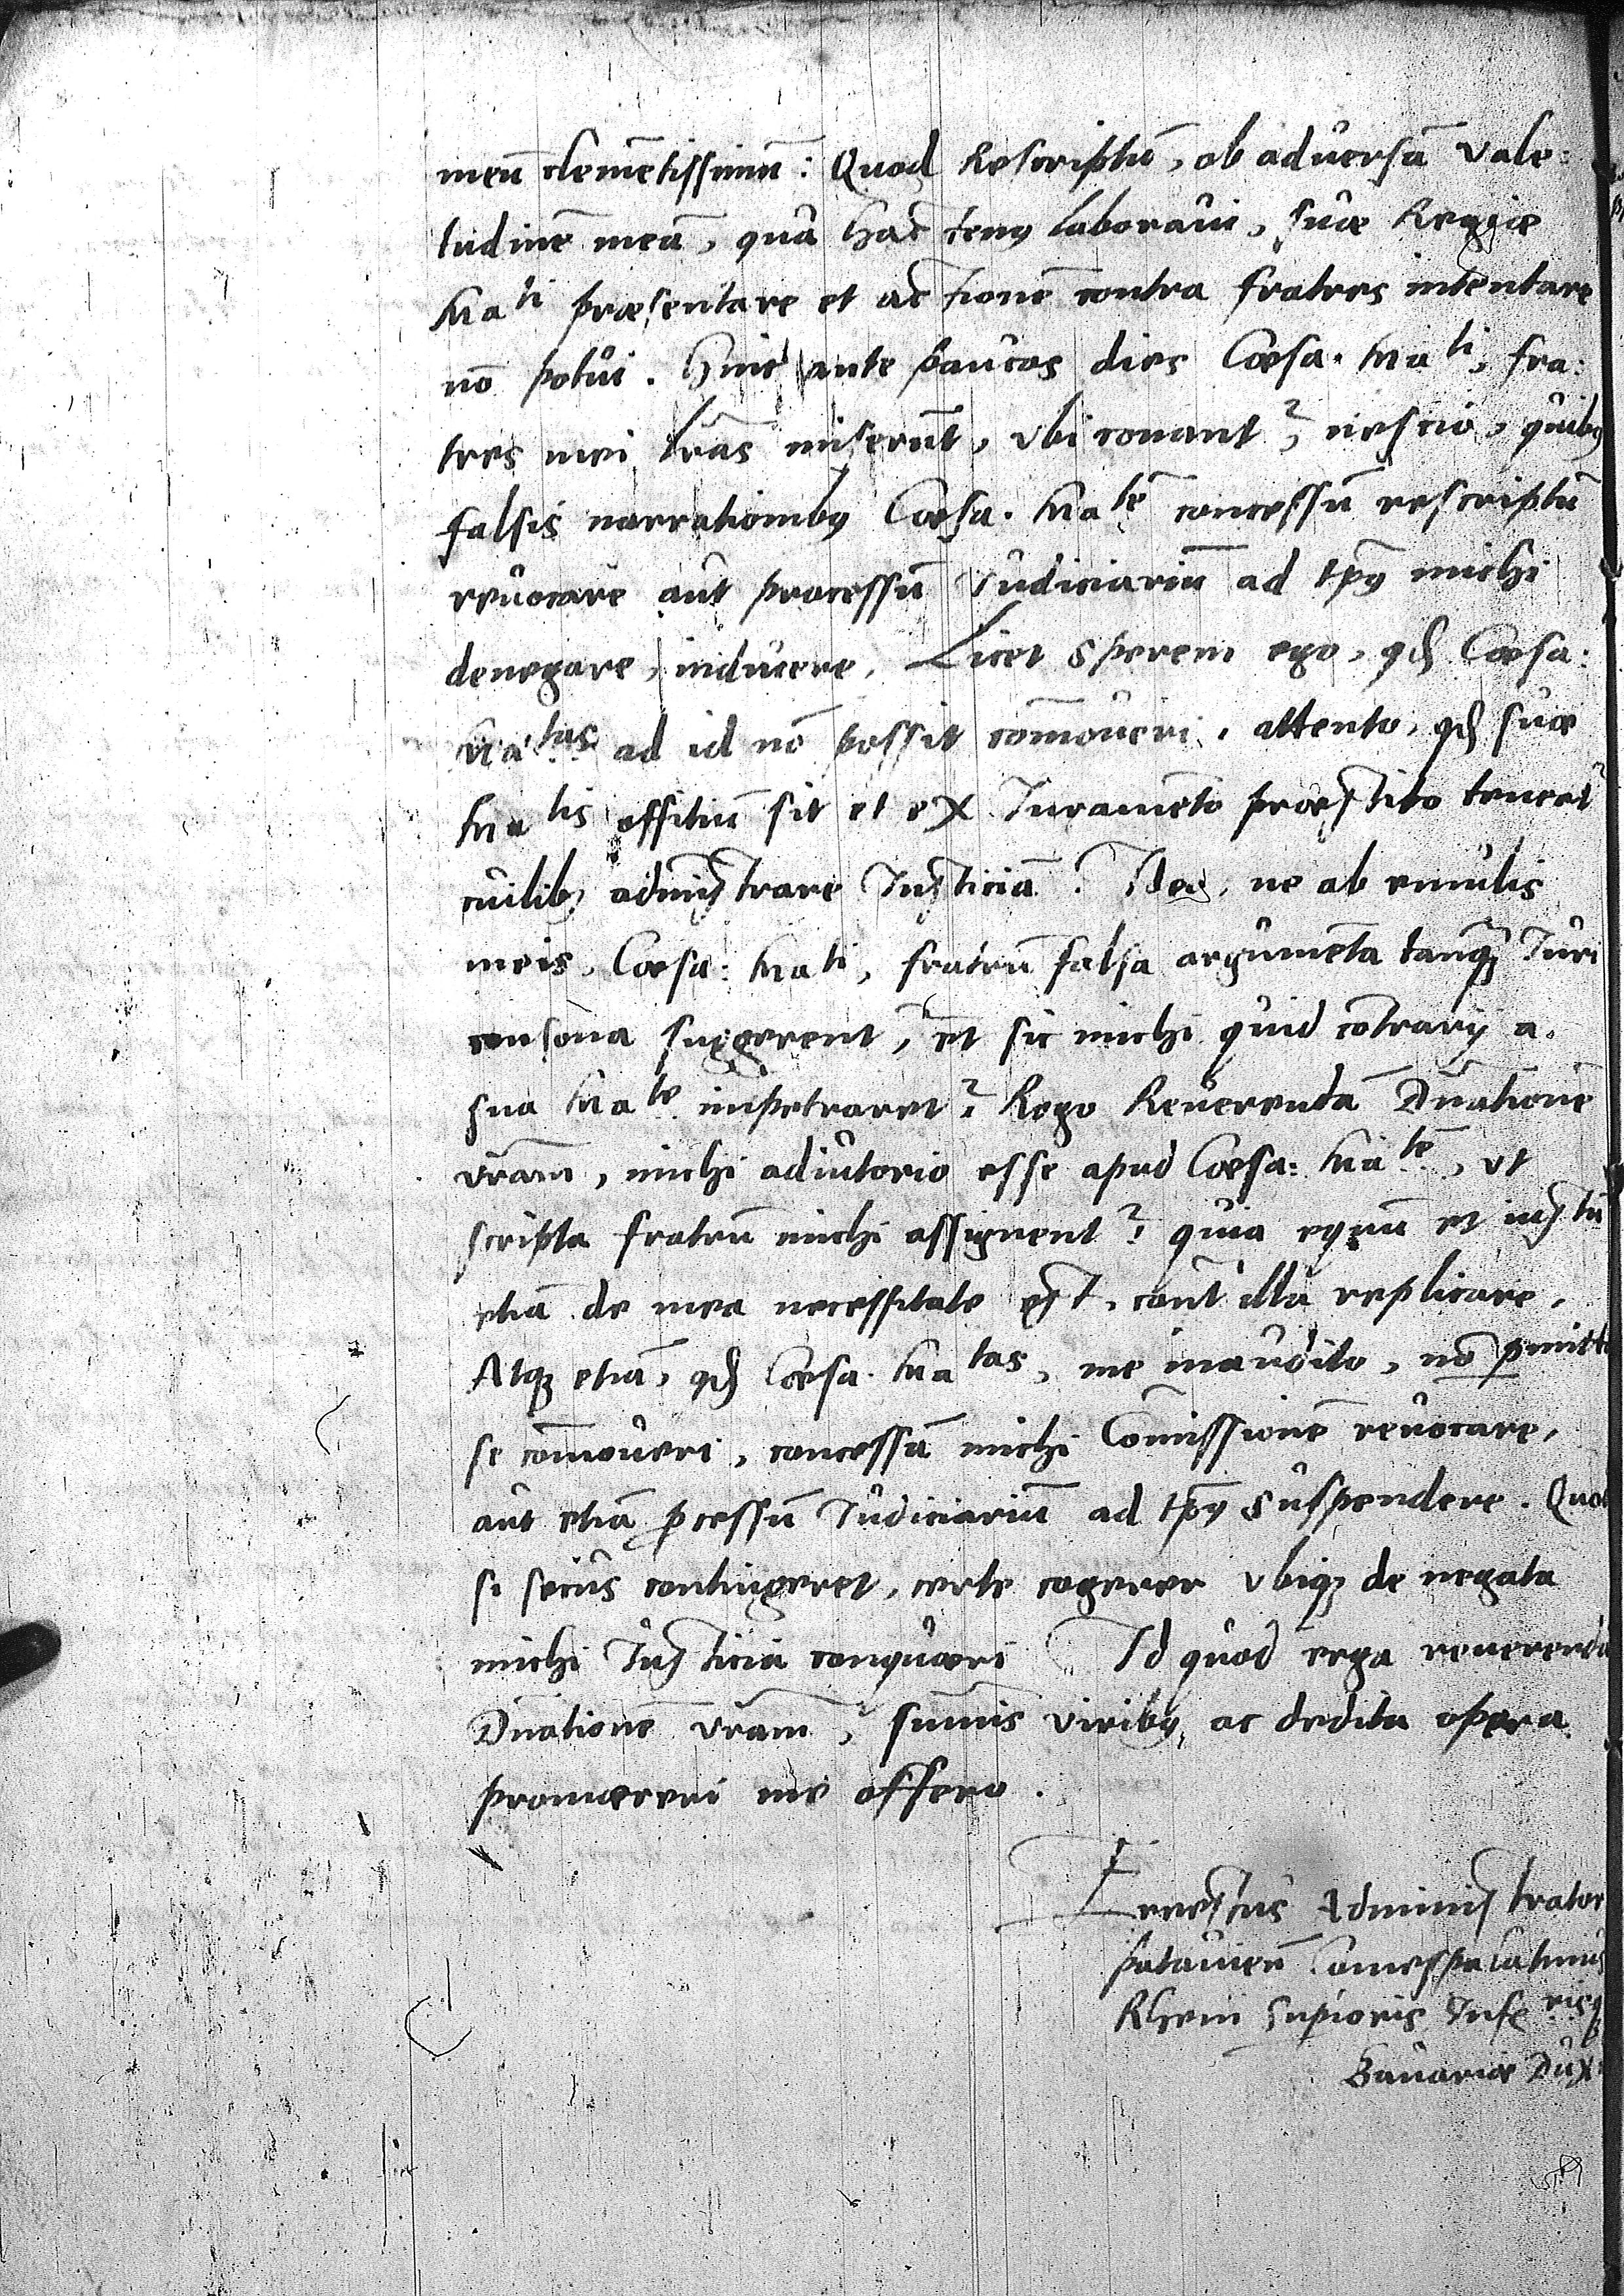 meū clemētissimū: Quod Rescriptū, ob aduersā vale:
tudinē meā, qua hac̄tenꝰ laboraui, suæ Regiæ
Maᵗⁱ præsentare et actionē contra fratres intentare
nō potui. Huic ante paucos dies Cæsa. Maᵗⁱ, fra:
tres mei lr̃as miserūt, vbi conant², nescio, quibꝰ
falsis narrationibꝰ Cæsa. Maᵗẽ concessū rescriptū
reuocare aut processū Iudiciariū ad tp̄ꝰ michi
denegare, inducere. Licet sperem ego, qđ Cæsa:
Maᵗᵃˢ ad id nō possit com̄oueri, attento, qđ suæ
Maᵗⁱˢ offitiū sit et ex Iuramēto præstito teneat²
cuilibꝫ administrare Iusticiā. Ideo, ne ab emulis
meis, Cæsa: Maᵗⁱ, fratrū falsa argumēta tanqꝫ Iuri
consona suggerent², et sic michi quid cōtrarij a
sua Maᵗᵉ impetraret². Rogo Reuerendā Dn̄ationē
vr̄am, michi adiutorio esse apud Cæsa: Maᵗẽ, vt
scripta fratrū michi assignent². quia equū et iustū
etiā de mea necessitate est, cont² illa replicare.
Atqꝫ etiā, qđ Cæsa. Maᵗᵃˢ, me inaudito, nō pmitt
se com̄oueri, concessā michi Com̄issionē reuocare,
aut etiā ꝓcessū Iudiciariū ad tp̄ꝰ suspendere. Quod
si secus contingeret, certe cogerer vbiqꝫ de negata
michi Iusticia conquæri Id quod erga reuerendā
Dn̄ationē vr̄am, sum̄is viribꝰ, ac dedita opera
promæreri me offero.
Ernestus Administrator
patauieñ Comes palatinus
Rheni supioris Inferisqꝫ
Bauariæ Dux